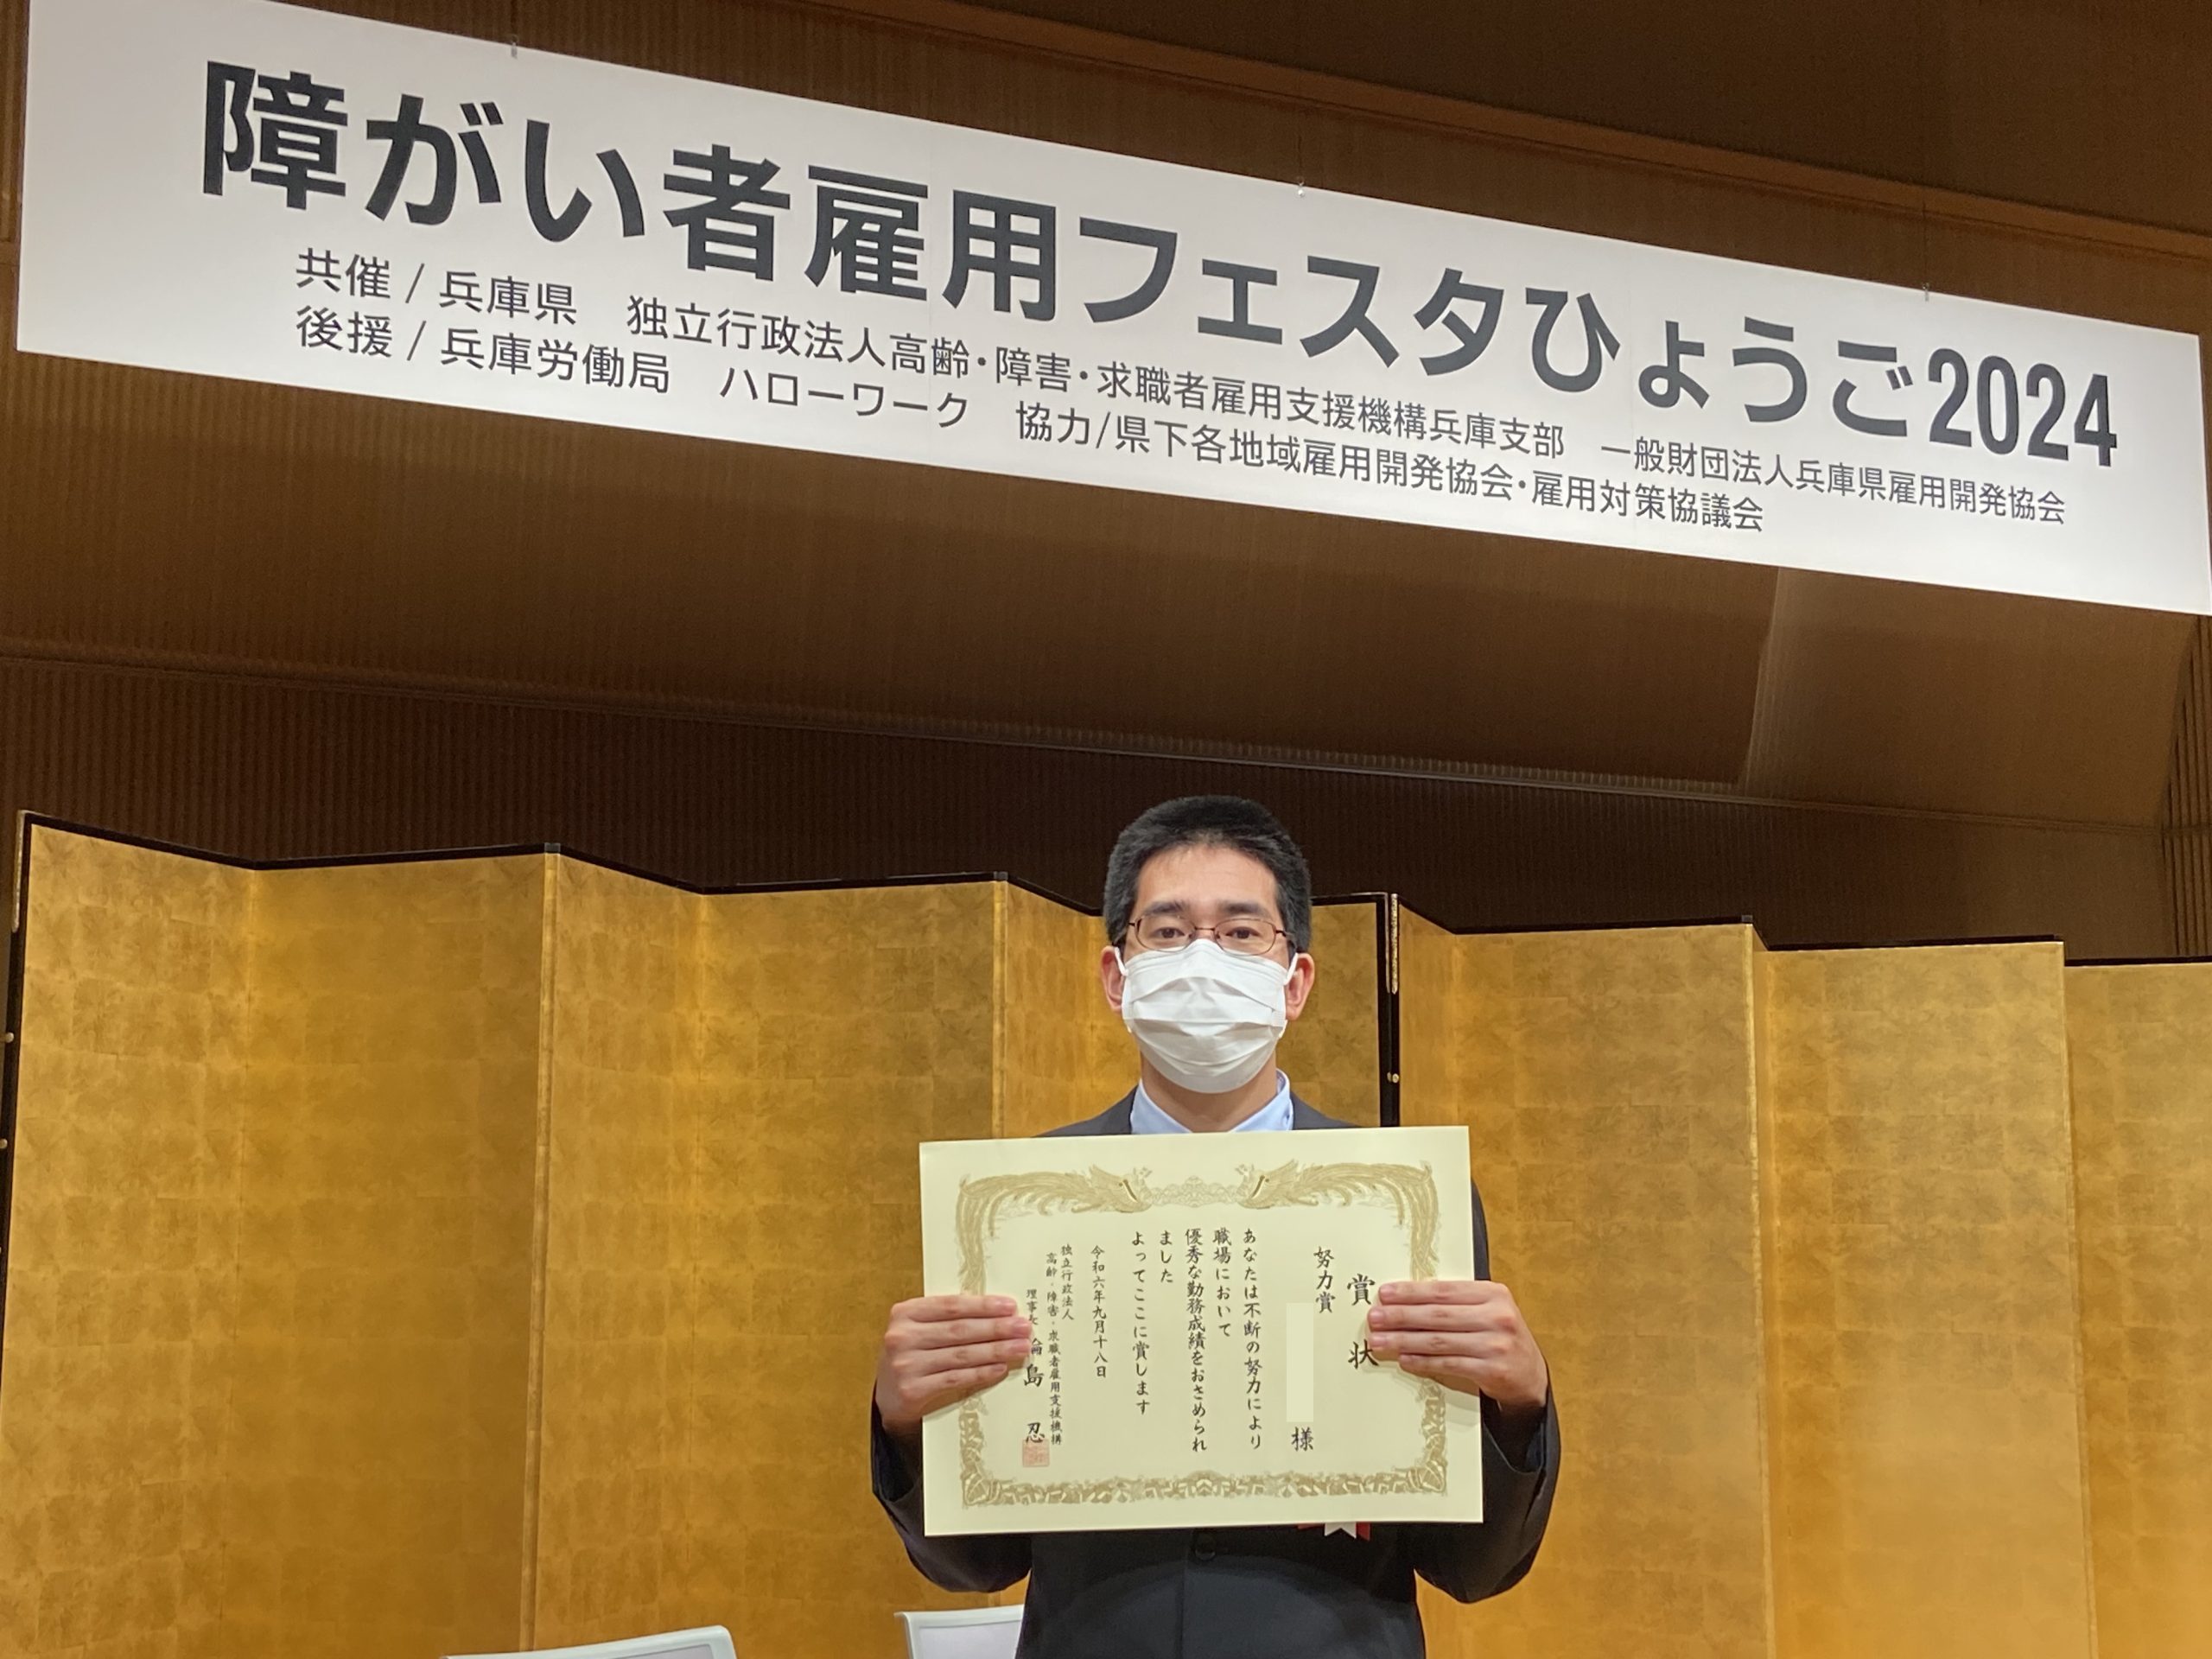 障がい者雇用フェスタひょうご2024
共催/兵庫県　独立行政法人高齢・障害・求職者雇用支援機構兵庫支部　一般財団法人兵庫県雇用開発協会
後援/兵庫労働局　ハローワーク　協力/県下各地域雇用開発協会・雇用対策協議会
賞状
努力賞
様
あなたは不断の努力により
職場において
優秀な勤務成績をおさめられ
ました
よってここに賞します
令和六年九月十八日
独立行政法人
高齢・障害・求職者雇用支援機構
理事長　輪島　忍